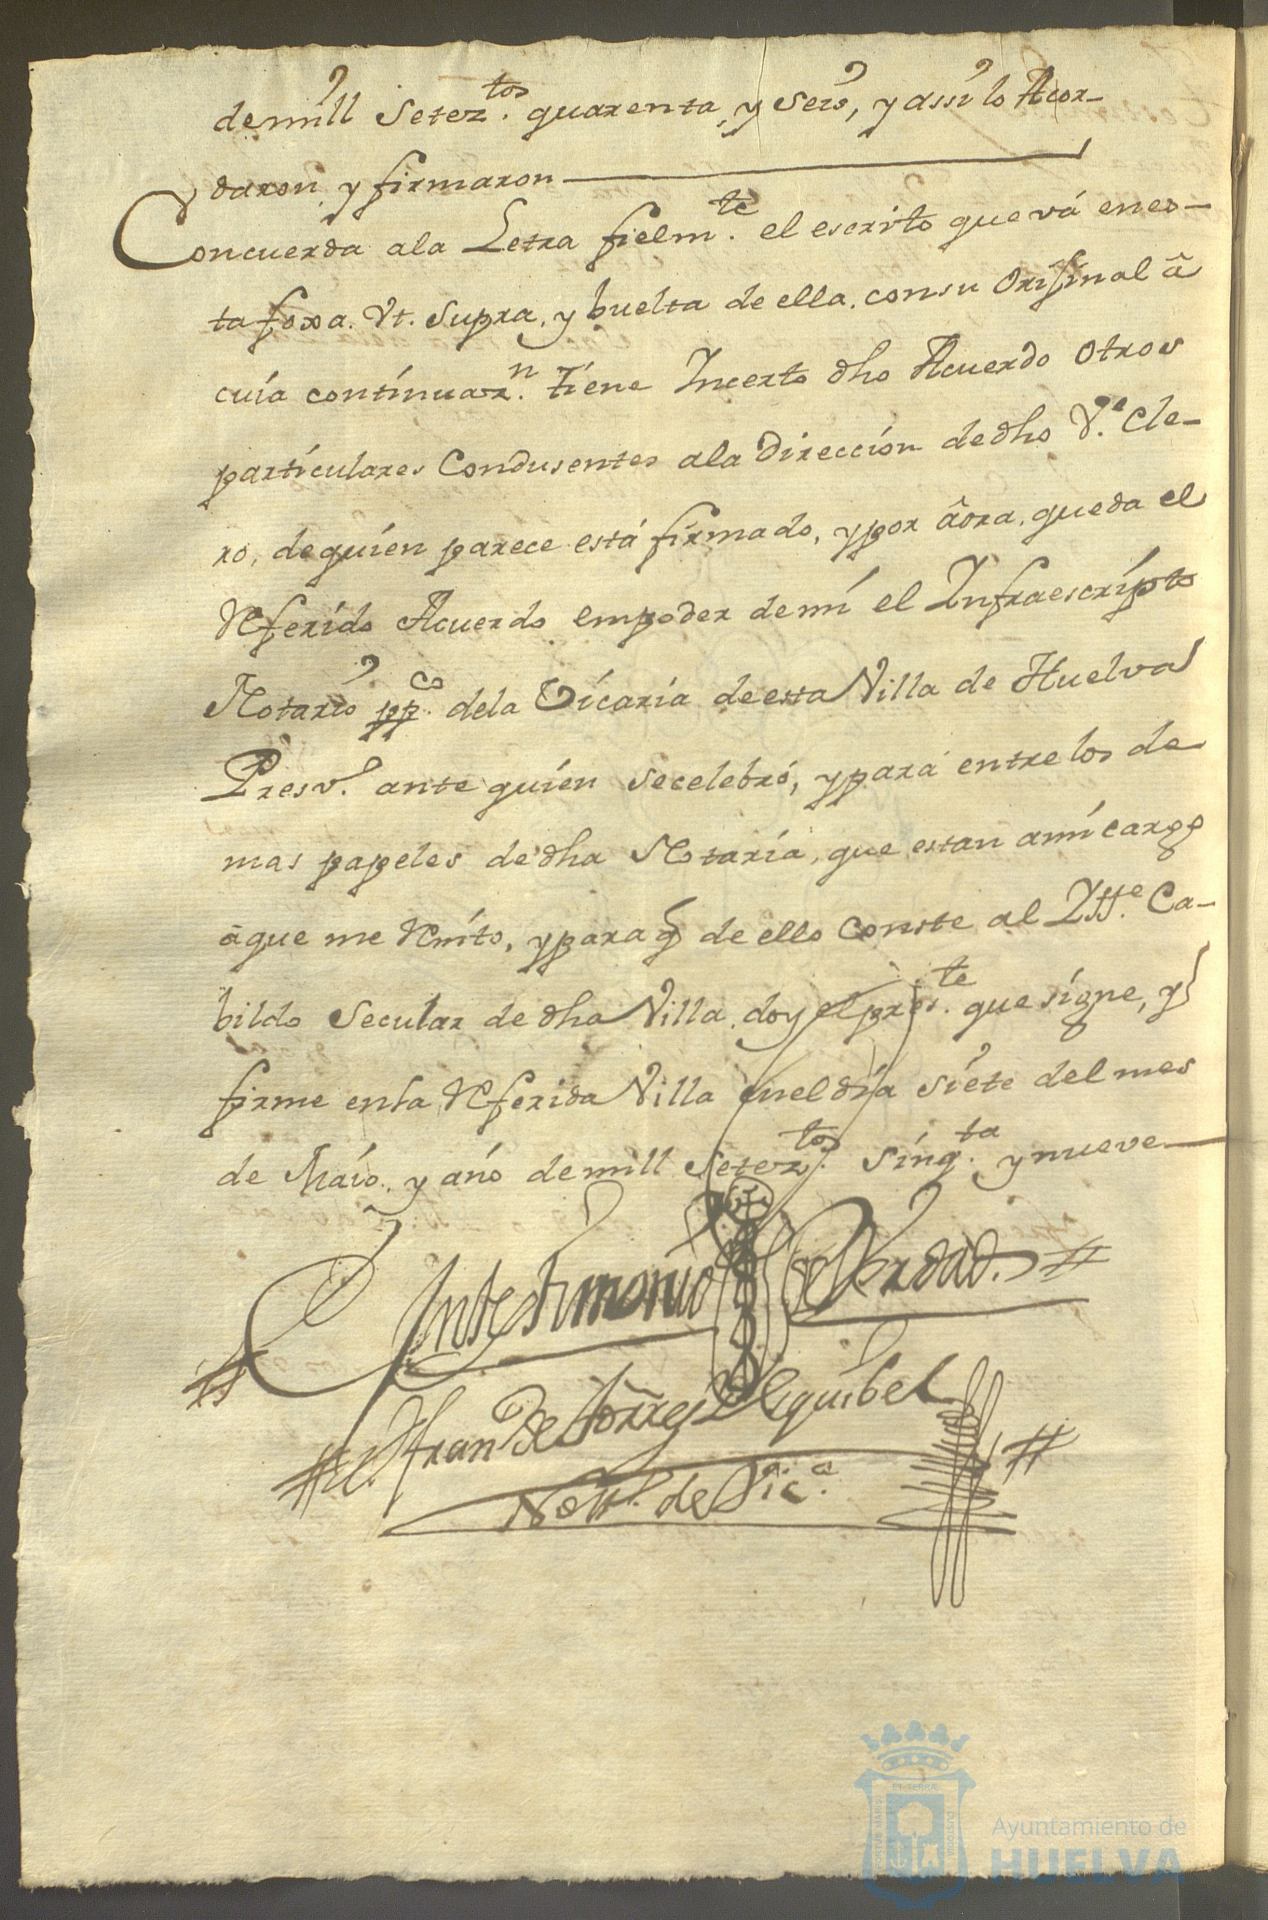 demill Setez.tos quarenta, y Seis, y assi lo Acor-
daron, y firmaron
Concuerda ala Letra fielm.te el escrito que vá enes-
ta foxa. Vt. Supra, y buelta de ella. consu Original â
cuia continuaz.n tiene Incerto dho Acuerdo otros
particulares Condusentes ala Direccion de dho V.e Cle-
ro, dequien parece está firmado, ypor âora, queda el
Referido Acuerdo empoder demi el Infraescripto
Notario pp.co dela Vicaria de esta Villa de Huelva
Presv.o ante quien secelebró, ypara entre los de
mas papeles de dha Notaria, que estan ami cargo
âque me Remito, ypara q de ello Conste al Ill.e Ca-
bildo Secular de dha Villa, doy el pres.te que signe, y
firme enla Referida Villa enel dia siete del mes
de Maio. y año demill Setez.tos sinq.ta y nueve
En testimonio de Verdad.
Fran.co de Torres Esquibel
Nott.o de Vic.a
Ayuntamiento de
HUELVA